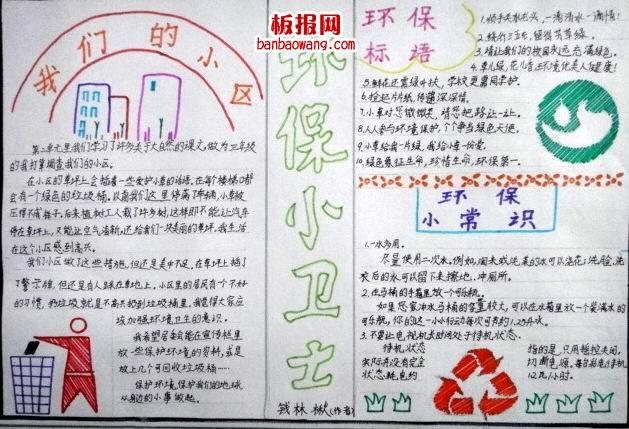 板报网
banbaowang.com
我们的小区
第三单元里我们学习了许多关于大自然的课文,做为三年级
的我打算调查我们的小区。
在小区的草坪上会插着一些爱护小草的话语。在每个楼梯口都
会有个绿色的垃圾桶。以前我们这里停满了车辆,小草被
压得不成样子。后来植树工人栽了许多树,这样即不能让汽车
停在草坪上,又能让空气清新,还给我们一块美丽的草坪,我生活
在这个小区感到高兴。
我们小区做了这些措施,但还是美中不足,在草坪上插了
了警示牌,但还是有人踩在草地上,小区里的居民有个不好
的习惯,扔垃圾就是不喜欢扔到垃圾桶里,我觉得大家应
该加强环境卫生的意识。
我希望居委会能在宣传栏里
放一些保护环境的资料,或是
放上几个可回收垃圾桶……
保护环境,保护我们的地球
从身边的小事做起。
环保小卫士
钱林楸(作者)
环保
标语
1.顺手关水龙头,一滴清水一滴情!
2.绿行三与
3.请让我们的校园永远充满绿色。
4.草儿绿,花儿香,环境优美人人健康!
5.鲜花还需绿叶扶,学校更需同学护。
6.捡起一片纸,传递深深情。
7.小草对您微微笑,请您把路让一让。
8.人人参与环境保护,个个争当绿色天使。
9.小草给我一片绿,我给小草一份爱。
10.绿色象征生命,珍惜生命,环保第一。
环保
小常识
1.一水多用。
尽量使用二次水。例如,淘米或洗菜的水可以浇花;洗脸、洗
衣后的水可以留下来擦地、冲厕所。
2.在马桶的水箱里放一个可乐瓶。
如果您家冲水马桶的容量较大,可以在水箱里放一个装满水的
可乐瓶,你的这一小小行动每次可节约1.25升水。
3.不要让电视机长时间处于待机状态。
待机状态
指的是,只用遥控关闭,
实际并没完全
切断电源。每台彩电待机
状态耗电约
1.2瓦/小时。